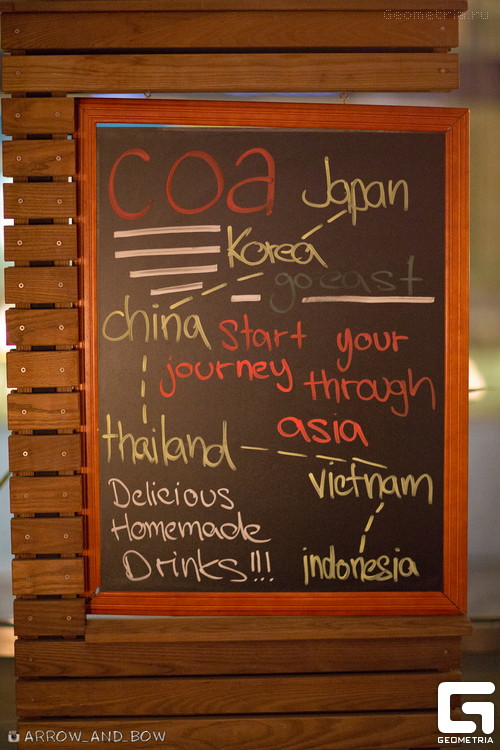 Geometria.ru
COA
Japan
Korea
go east
china
start your
journey through
asia
thailand
vietnam
Delicious
Homemade
Drinks!!!
indonesia
ARROW_AND_BOW
GEOMETRIA